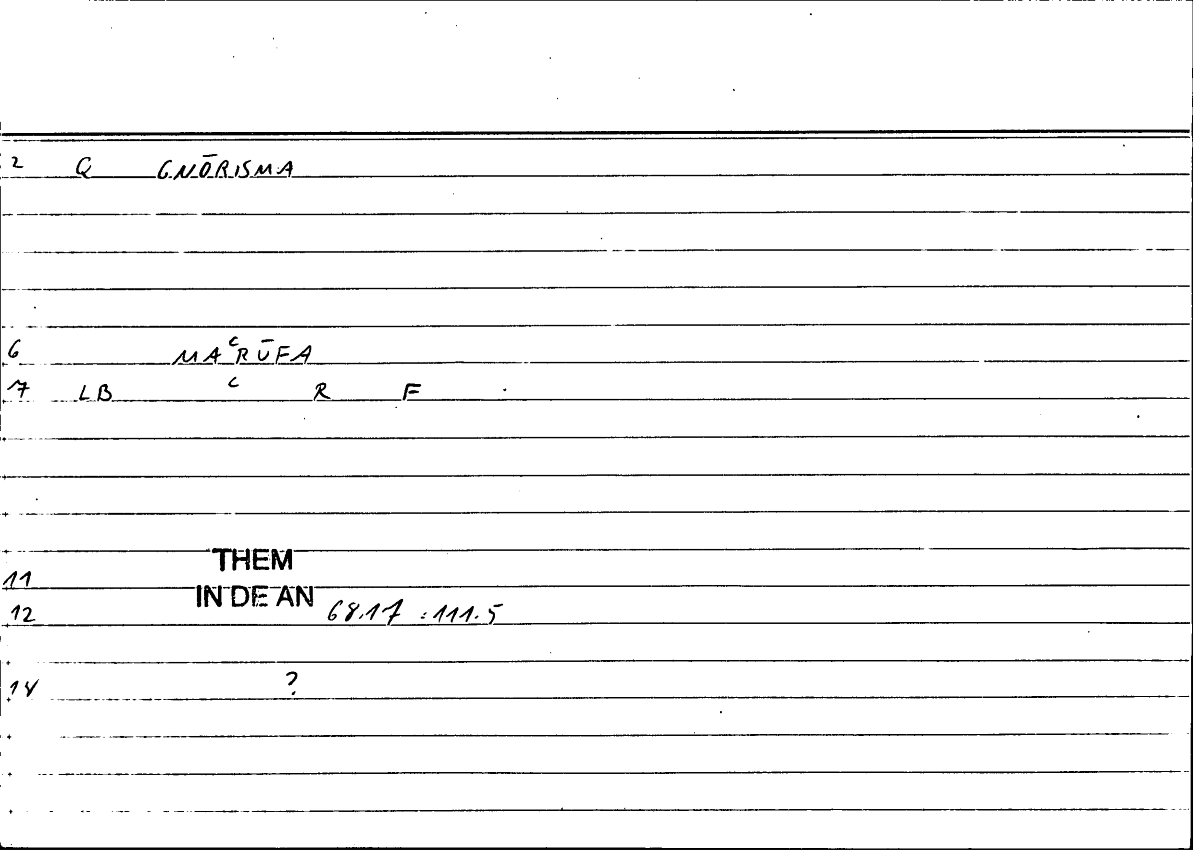 2 Q GNŌRISMA
6 MAʿRŪFA
7 LB ʿ R F
THEM
11
IN DE AN
12 68.17 : 111.5
14 ?